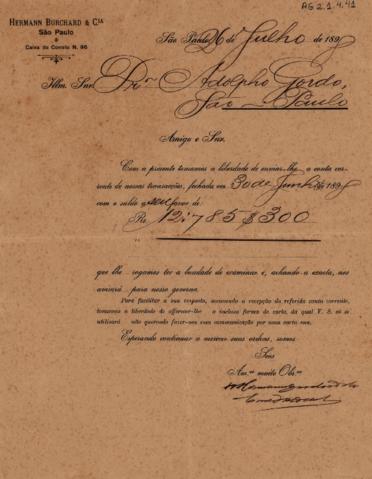 AG 2.1.4.41
HERMANN BURCHARD & CIA
São Paulo
Caixa do Correio N. 96
São Paulo, 26 de Julho de 189
Illm. Snr. Dr. Adolpho Gordo,
São Paulo
Amigo e Snr.
Com a presente tomamos a liberdade de enviar-lhe a conta cor-
rente de nossas transacções, fechada em 30 de Junho 189
com o saldo a seu favor de
Rs 12:785$300
que lhe rogamos ter a bondade de examinar e, achando-a exacta, nos
avisará para nosso governo.
Para facilitar a sua resposta, accusando a recepção da referida conta corrente,
tomamos a liberdade de offerecer-lhe a inclusa forma de carta, da qual V. S. só se
utilisará não querendo fazer-nos essa communicação por uma carta sua.
Esperando continuar a merecer suas ordens, somos
Seus
Am.os muito Obr.os